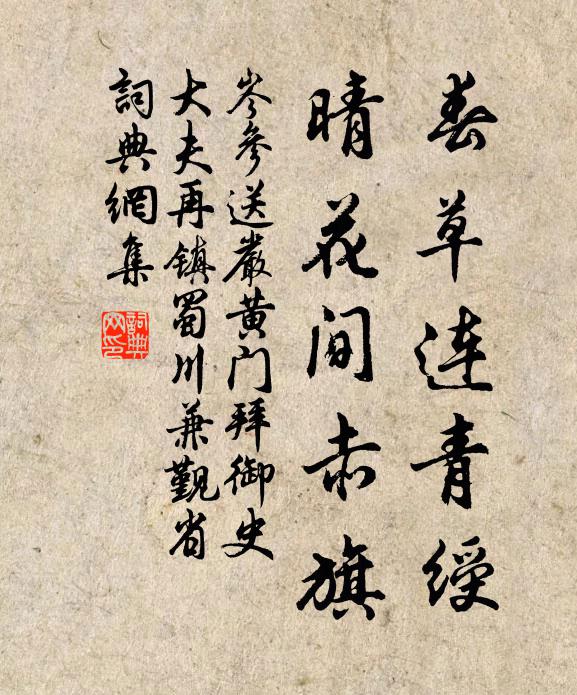 春草連青綬
晴花間赤旗
岑參送嚴黄门拜御史
大夫再镇蜀川兼觐省
詞典網集
詞典网印